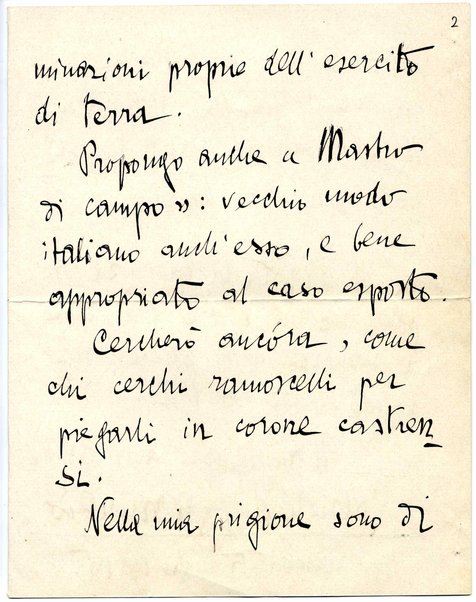 2
minazioni proprie dell'esercito
di terra.
Propongo anche « Mastro
di campo »: vecchio modo
italiano anch'esso, e bene
appropriato al caso esposto.
Cercherò ancóra, come
chi cerchi ramoscelli per
piegarli in corone castren
si.
Nella mia prigione sono di